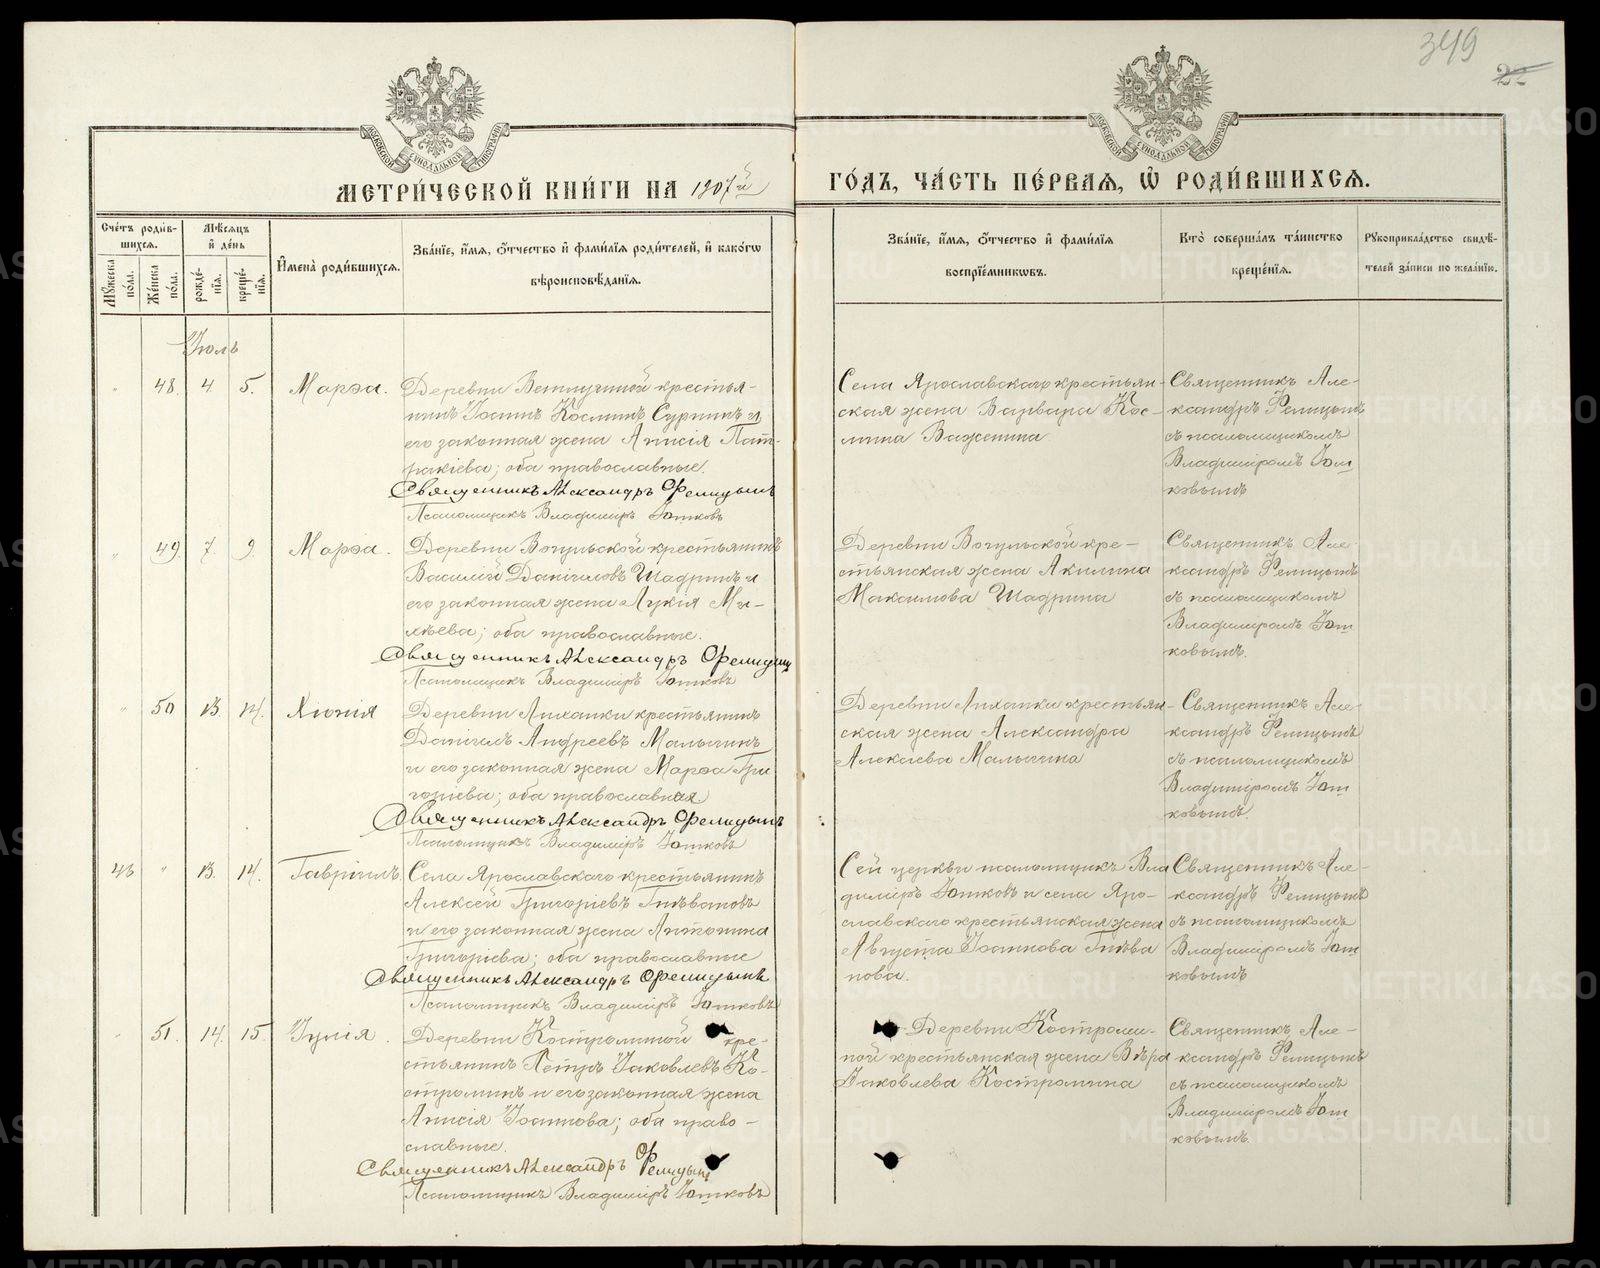 349
22
МОСКОВСКОЙ СѴНОДАЛЬНОЙ ТИПОГРАФІИ
МОСКОВСКОЙ СѴНОДАЛЬНОЙ ТИПОГРАФІИ
МЕТРИ́ЧЕСКОЙ КНИ́ГИ НА 1907й
ГО́ДЪ, ЧА́СТЬ ПЕ́РВАѦ, Ѡ҆ РОДИ́ВШИХСѦ.
Сче́тъ роди́в-
шихсѧ.
Мꙋ́жеска по́ла.
Же́нска по́ла.
Мѣ́сѧцъ
и҆ де́нь
рожде́-
нїѧ.
креще́-
нїѧ.
И҆мена̀ роди́вшихсѧ.
Зва́нїе, и҆́мѧ, ѻ҆́тчество и҆ фами́лїѧ роди́телей, и҆ како́гѡ
вѣроисповѣ́данїѧ.
Зва́нїе, и҆́мѧ, ѻ҆́тчество и҆ фами́лїѧ
воспрїе́мникѡвъ.
Кто̀ соверша́лъ та́инство
креще́нїѧ.
Рꙋкоприкла́дство свидѣ́-
телей за́писи по жела́нїю.
Іюль
" 48. 4. 5. Марѳа.
Деревни крестья-
нинъ Іоаннъ Косминъ Суринъ и
его законная жена Анисія Пат-
ракіева; оба православные.
Священникъ Александръ Фелицынъ
Псаломщикъ Владиміръ Іотковъ
Села Ярославскаго крестьян-
ская жена Варвара Кос-
мина Важенина
Священникъ Але-
ксандръ Фелицынъ
съ псаломщикомъ
Владиміромъ Іот
ковымъ
" 49. 7. 9. Марѳа.
Деревни Вогульской крестьянинъ
Василій Даніиловъ Шадринъ и
его законная жена Лукія Ми-
хѣева; оба православные.
Священникъ Александръ Фелицын
Псаломщикъ Владиміръ Іотковъ
Деревни Вогульской кре-
стьянская жена Акилина
Максимова Шадрина
Священникъ Але-
ксандръ Фелицынъ
съ псаломщикомъ
Владиміромъ Іот
ковымъ.
" 50 13. 14. Хіонія
Деревни Липалки крестьянинъ
Даніилъ Андреевъ Малыгинъ
и его законная жена Марѳа Гри
горіева; оба православная
Священникъ Александръ Фелицынъ
Псаломщикъ Владиміръ Іотковъ
Деревни Липалки крестьян-
ская жена Александра
Алексіева Малыгина
Священникъ Але-
ксандръ Фелицынъ
съ псаломщикомъ
Владиміромъ Іот
ковымъ.
46 " 13. 14. Гавріилъ.
Села Ярославскаго крестьянинъ
Алексѣй Григоріевъ Гнѣвановъ
и его законная жена Антонина
Григоріева; оба православные
Священникъ Александръ Фелицынъ
Псаломщикъ Владиміръ Іотковъ
Сей церкви псаломщикъ Вла
диміръ Іотковъ и села Яро-
славскаго крестьянская жена
Августа Іоаннова Гнѣва
нова.
Священникъ Але-
ксандръ Фелицынъ
съ псаломщикомъ
Владиміромъ Іот
ковымъ
" 51. 14. 15. Іулія.
Деревни Костроминой кре-
стьянинъ Петръ Іаковлевъ Ко-
строминъ и его законная жена
Анисія Іоаннова; оба право-
славные.
Священникъ Александръ Фелицын
Псаломщикъ Владиміръ Іотковъ
Деревни Костроми-
ной крестьянская жена Вѣра
Іаковлева Костромина
Священникъ Але-
ксандръ Фелицынъ
съ псаломщикомъ
Владиміромъ Іот
ковымъ.
METRIKI.GASO-URAL.RU